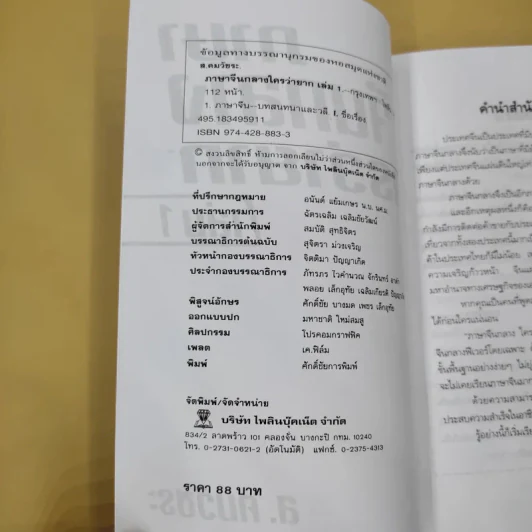 ข้อมูลทางบรรณานุกรมของหอสมุดแห่งชาติ
ส.คมวัชระ.
ภาษาจีนกลางใครว่ายาก เล่ม 1.--กรุงเทพฯ :
112 หน้า.
1. ภาษาจีน--บทสนทนาและวลี. I. ชื่อเรื่อง
495.183495911
ISBN 974-428-883-3
© สงวนลิขสิทธิ์ ห้ามการลอกเลียนไม่ว่าส่วนหนึ่งส่วนใดของหนังสือ
นอกจากจะได้รับอนุญาต จาก บริษัท ไพลินบุ๊คเน็ต จำกัด
ที่ปรึกษากฎหมาย อนันต์ แย้มเกษร น.บ. น.ม.
ประธานกรรมการ ฉัตรเฉลิม เฉลิมชัยวัฒน์
ผู้จัดการสำนักพิมพ์ สมบัติ สุทธิจิตร
บรรณาธิการต้นฉบับ สุจิตรา ม่วงเจริญ
หัวหน้ากองบรรณาธิการ จิตติมา ปัญญาเกิด
ประจำกองบรรณาธิการ ภัทรภร ไวคำนวณ จักรินทร์
พลอย เล็กอุทัย เฉลิมเกียรติ
พิสูจน์อักษร ศักดิ์ชัย บางมด เพชร เล็กอุทัย
ออกแบบปก มหาชาติ ใหม่สมสู
ศิลปกรรม โปรคอมกราฟฟิค
เพลต เค.ฟิล์ม
พิมพ์ ศักดิ์ชัยการพิมพ์
จัดพิมพ์/จัดจำหน่าย
บริษัท ไพลินบุ๊คเน็ต จำกัด
834/2 ลาดพร้าว 101 คลองจั่น บางกะปิ กทม. 10240
โทร. 0-2731-0621-2 (อัตโนมัติ) แฟกซ์. 0-2375-4313
ราคา 88 บาท
คำนำสำนัก
ประเทศจีนเป็นประเทศที่มี
ภาษาจีนกลางจึงนับว่าเป็นภาษาที่มี
เพียงแต่ประเทศจีนแผ่นดินใหญ่
ภาษาจีนกลางด้วย
และอีกเหตุผลหนึ่งก็คือ
กำลังมีการติดต่อค้าขายกับประเทศ
เที่ยวจากทั้งสองประเทศนี้มาก
ค้าในประเทศไทยก็มีไม่น้อย
ความเจริญก้าวหน้า จีน
มหาอำนาจทางเศรษฐกิจของ
หากคุณเป็นคนที่พูด
ได้ก่อนใครแน่นอน
"ภาษาจีนกลาง ใคร
จีนกลางฟีเวอร์โดยเฉพาะ
ขั้นพื้นฐานอย่างง่ายๆ
จะไม่เคยเรียนภาษาจีนมา
ด้วยความสามารถ
ประสบความสำเร็จในอาชีพ
รู้อย่างนี้ก็เริ่มเรียน